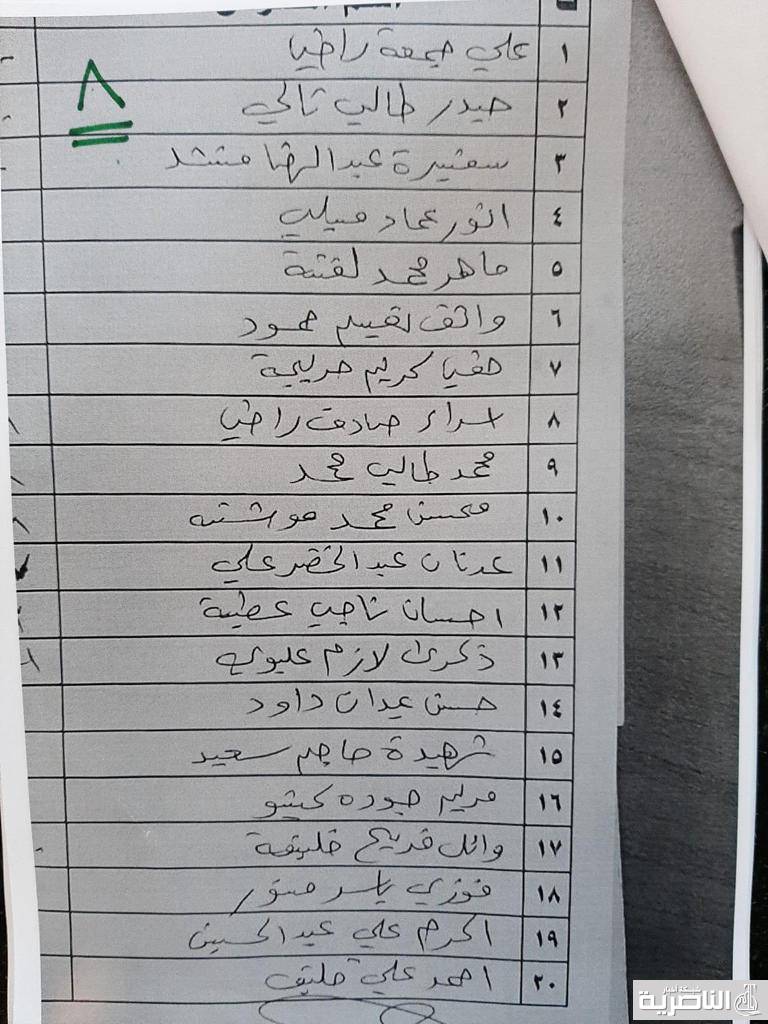 ١ علي جمعة راضي
٨
٢ حيدر طالب تالي
٣ سفيرة عبد الرضا منشد
٤ انور عماد
٥ ماهر محمد لفتة
٦ واثق حمود
٧ كريم
٨ اسراء صادق راضي
٩ محمد طالب محمد
١٠ محسن محمد
١١ عدنان عبد الخضر علي
١٢ احسان ناجي عطية
١٣ ذكرى لازم عليوي
١٤ حسن عيدان داود
١٥ شهيدة جاجم سعيد
١٦ مريم جوده
١٧ وائل فريح خليفة
١٨ فوزي ياسر
١٩ اكرم علي عبد الحسين
٢٠ احمد علي
شبكة اخبار
الناصرية